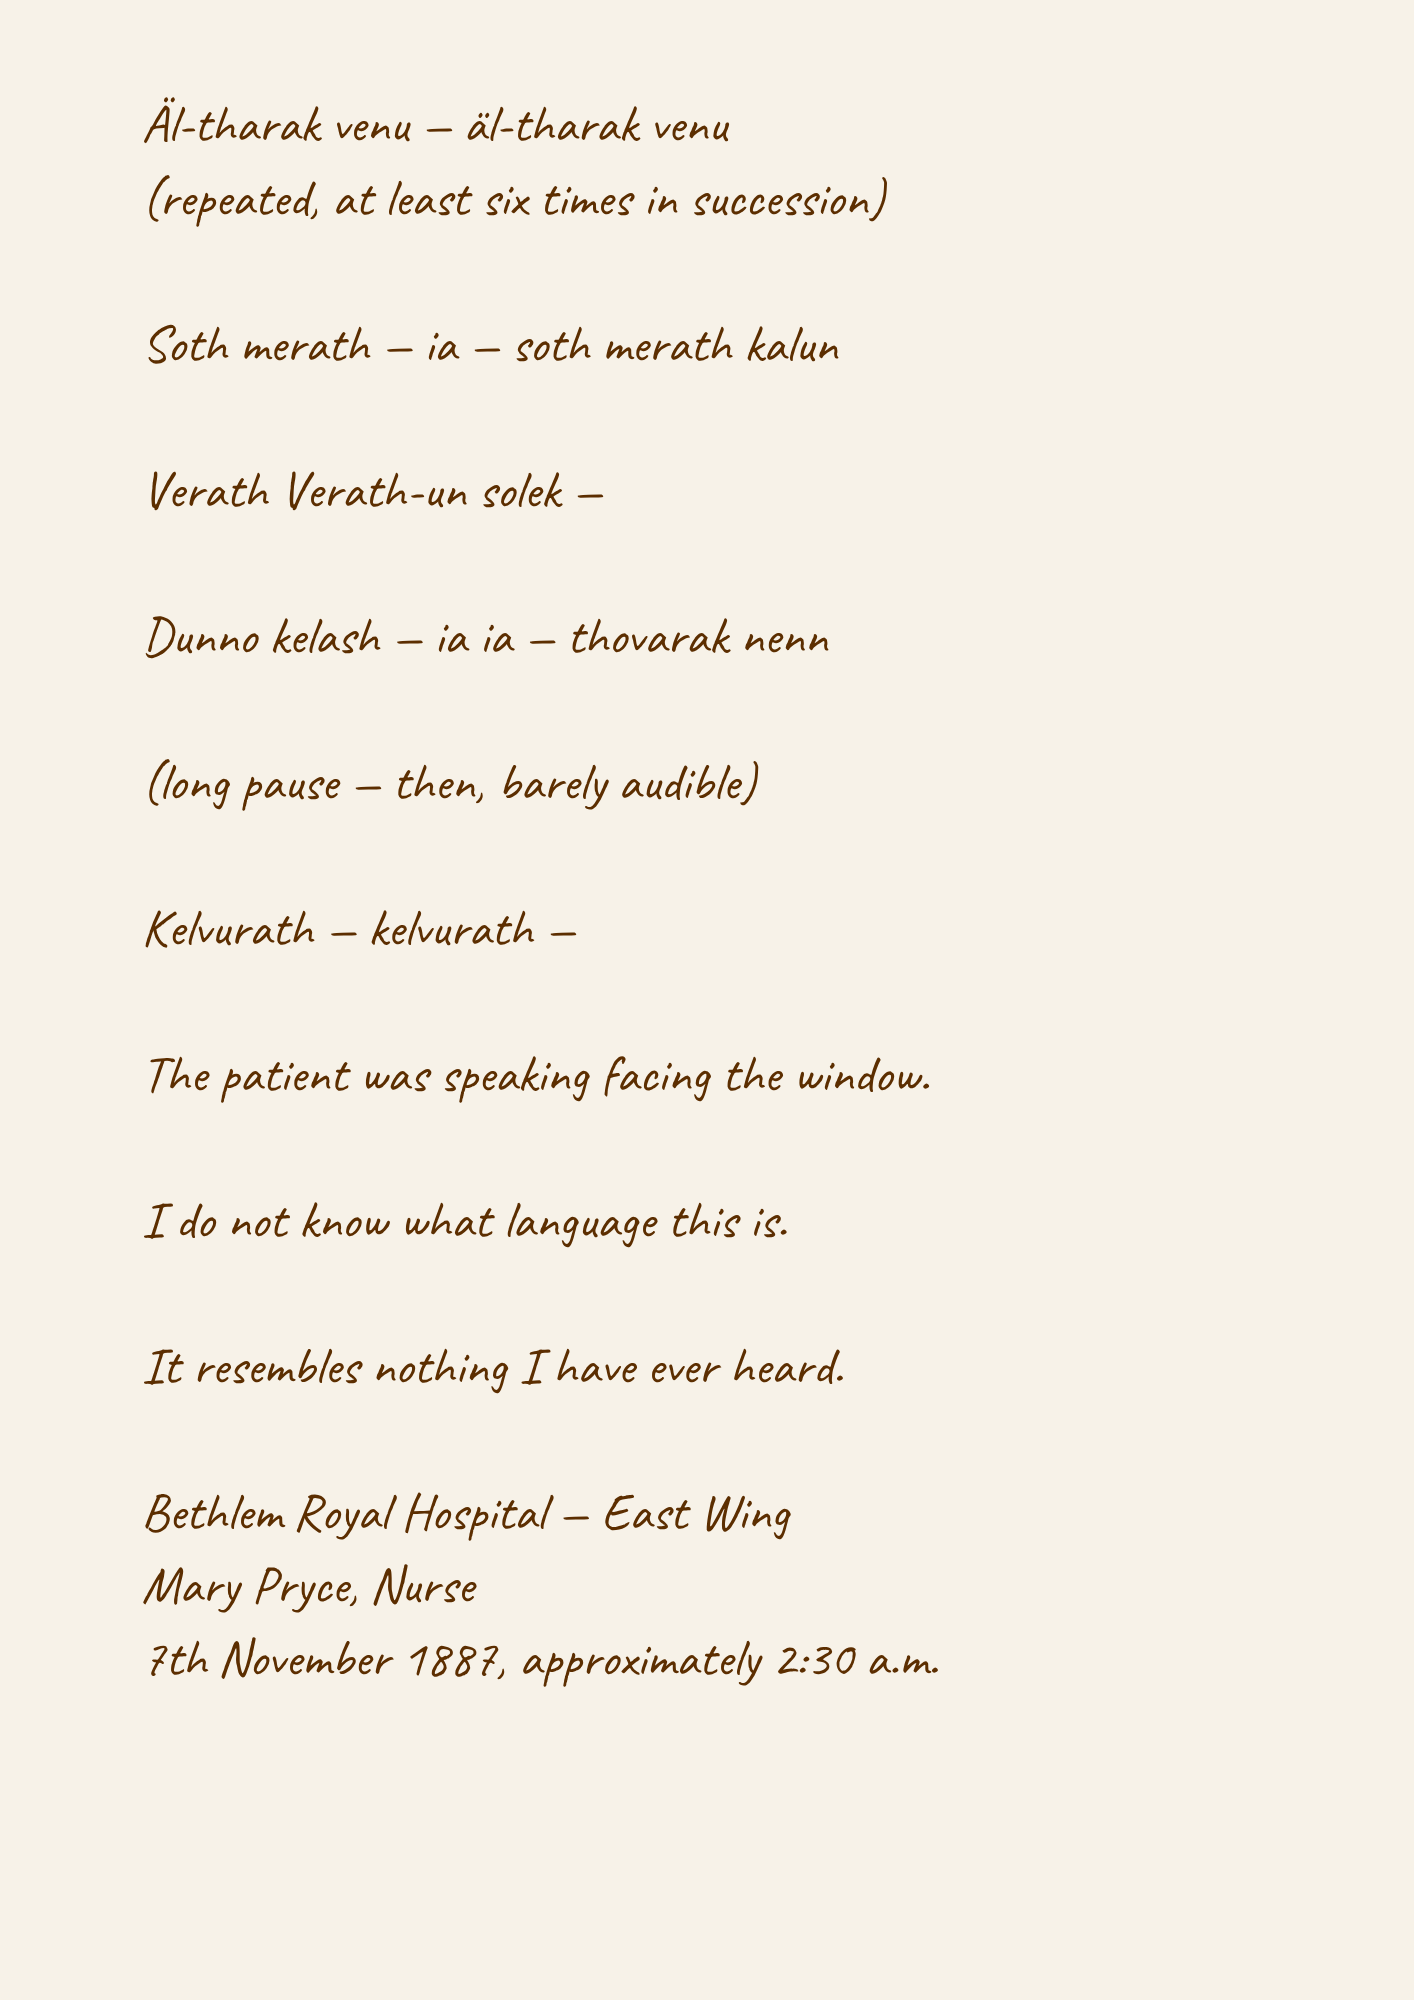 Äl-tharak venu – äl-tharak venu
(repeated, at least six times in succession)
Soth merath – ia – soth merath kalun
Verath Verath-un solek –
Dunno kelash – ia ia – thovarak nenn
(long pause – then, barely audible)
Kelvurath – kelvurath –
The patient was speaking facing the window.
I do not know what language this is.
It resembles nothing I have ever heard.
Bethlem Royal Hospital – East Wing
Mary Pryce, Nurse
7th November 1887, approximately 2:30 a.m.